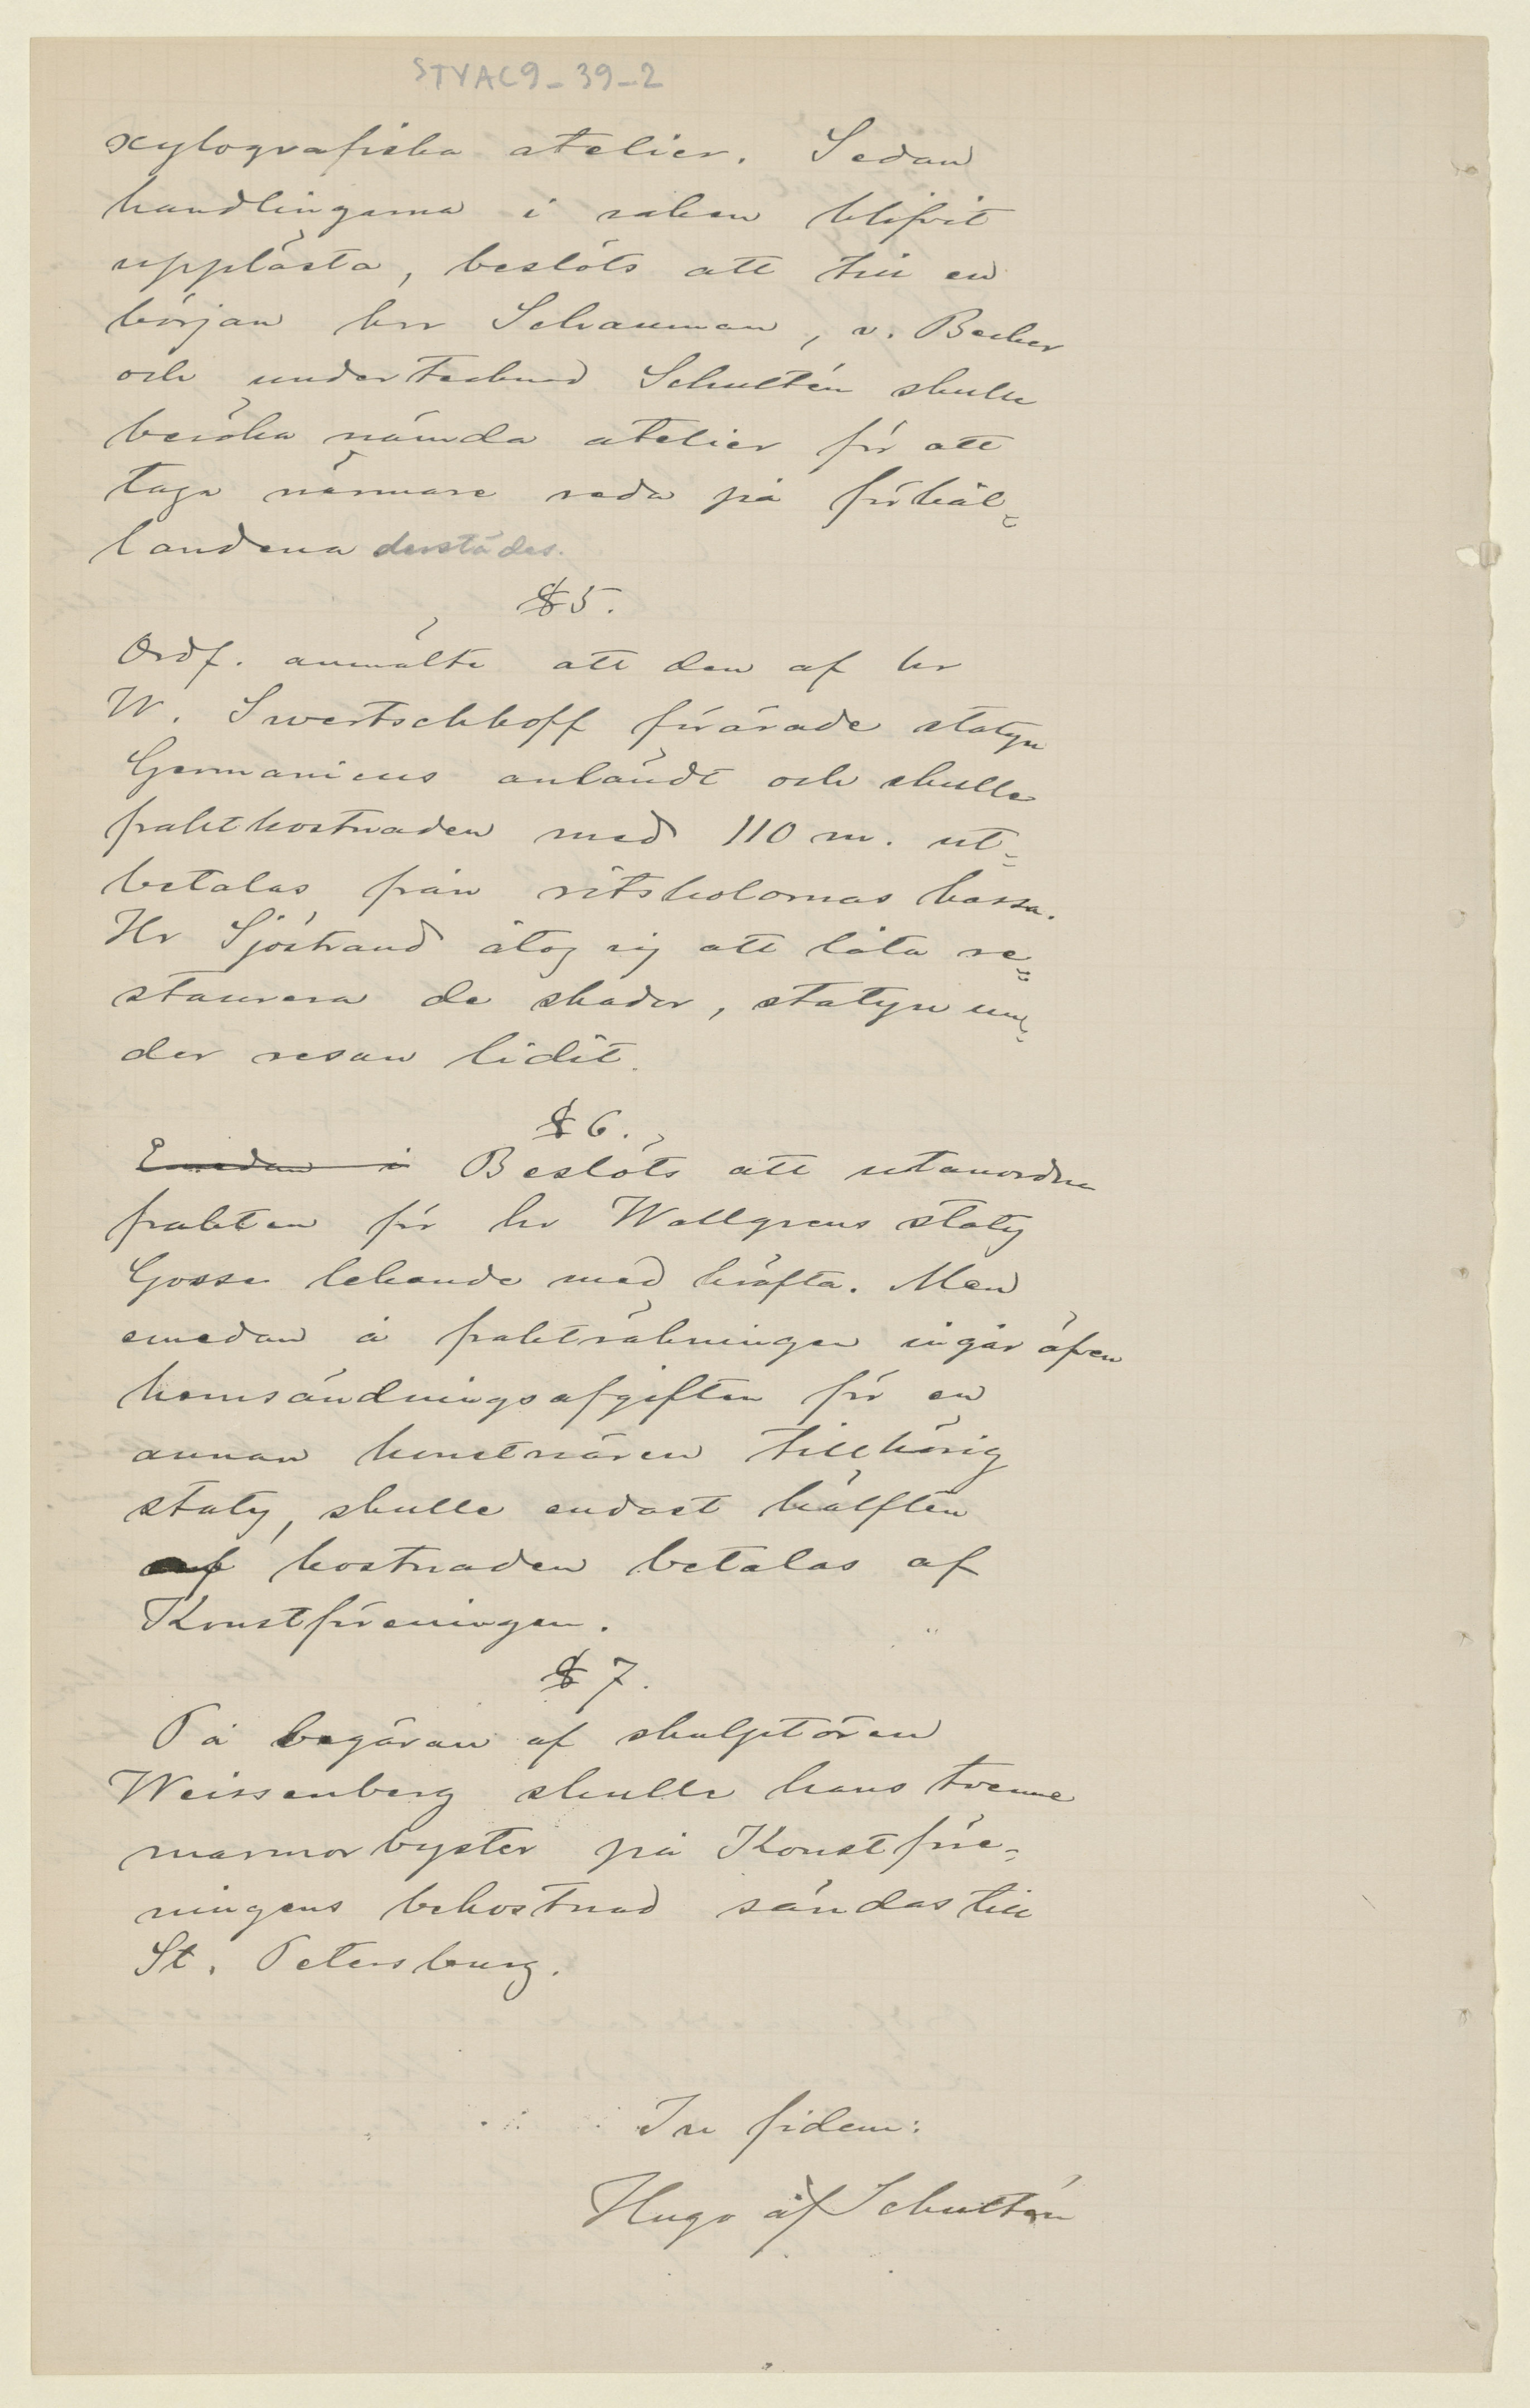 STYAC9_39_2
xylografiska atelier. Sedan
handlingarna i saken blifvit
upplästa, beslöts att till en
början hrr Schauman, v. Becker
och undertecknad Schultén skulle
besöka nämda atelier för att
taga närmare reda på förhål=
landena derstädes.
§ 5.
Ordf. anmälte att den af hr
W. Swertschkoff förärade statyn
Germanicus anländt och skulle
fraktkostnaden med 110 m. ut=
betalas från ritskolornas kassa.
Hr Sjöstrand åtog sig att låta re=
staurera de skador, statyn un=
der resan lidit.
§ 6.
Emedan i Beslöts att utanordna
frakten för hr Wallgrens staty
Gosse lekande med kräfta. Men
emedan i frakträkningen ingår äfven
hemsändningsafgiften för en
annan konstnären tillhörig
staty, skulle endast hälften
af kostnaden betalas af
Konstföreningen.
§ 7.
På begäran af skulptören
Weissenberg skulle hans tvenne
marmorbyster på Konstföre=
ningens bekostnad sändas till
St. Petersburg.
In fidem:
Hugo af Schultén